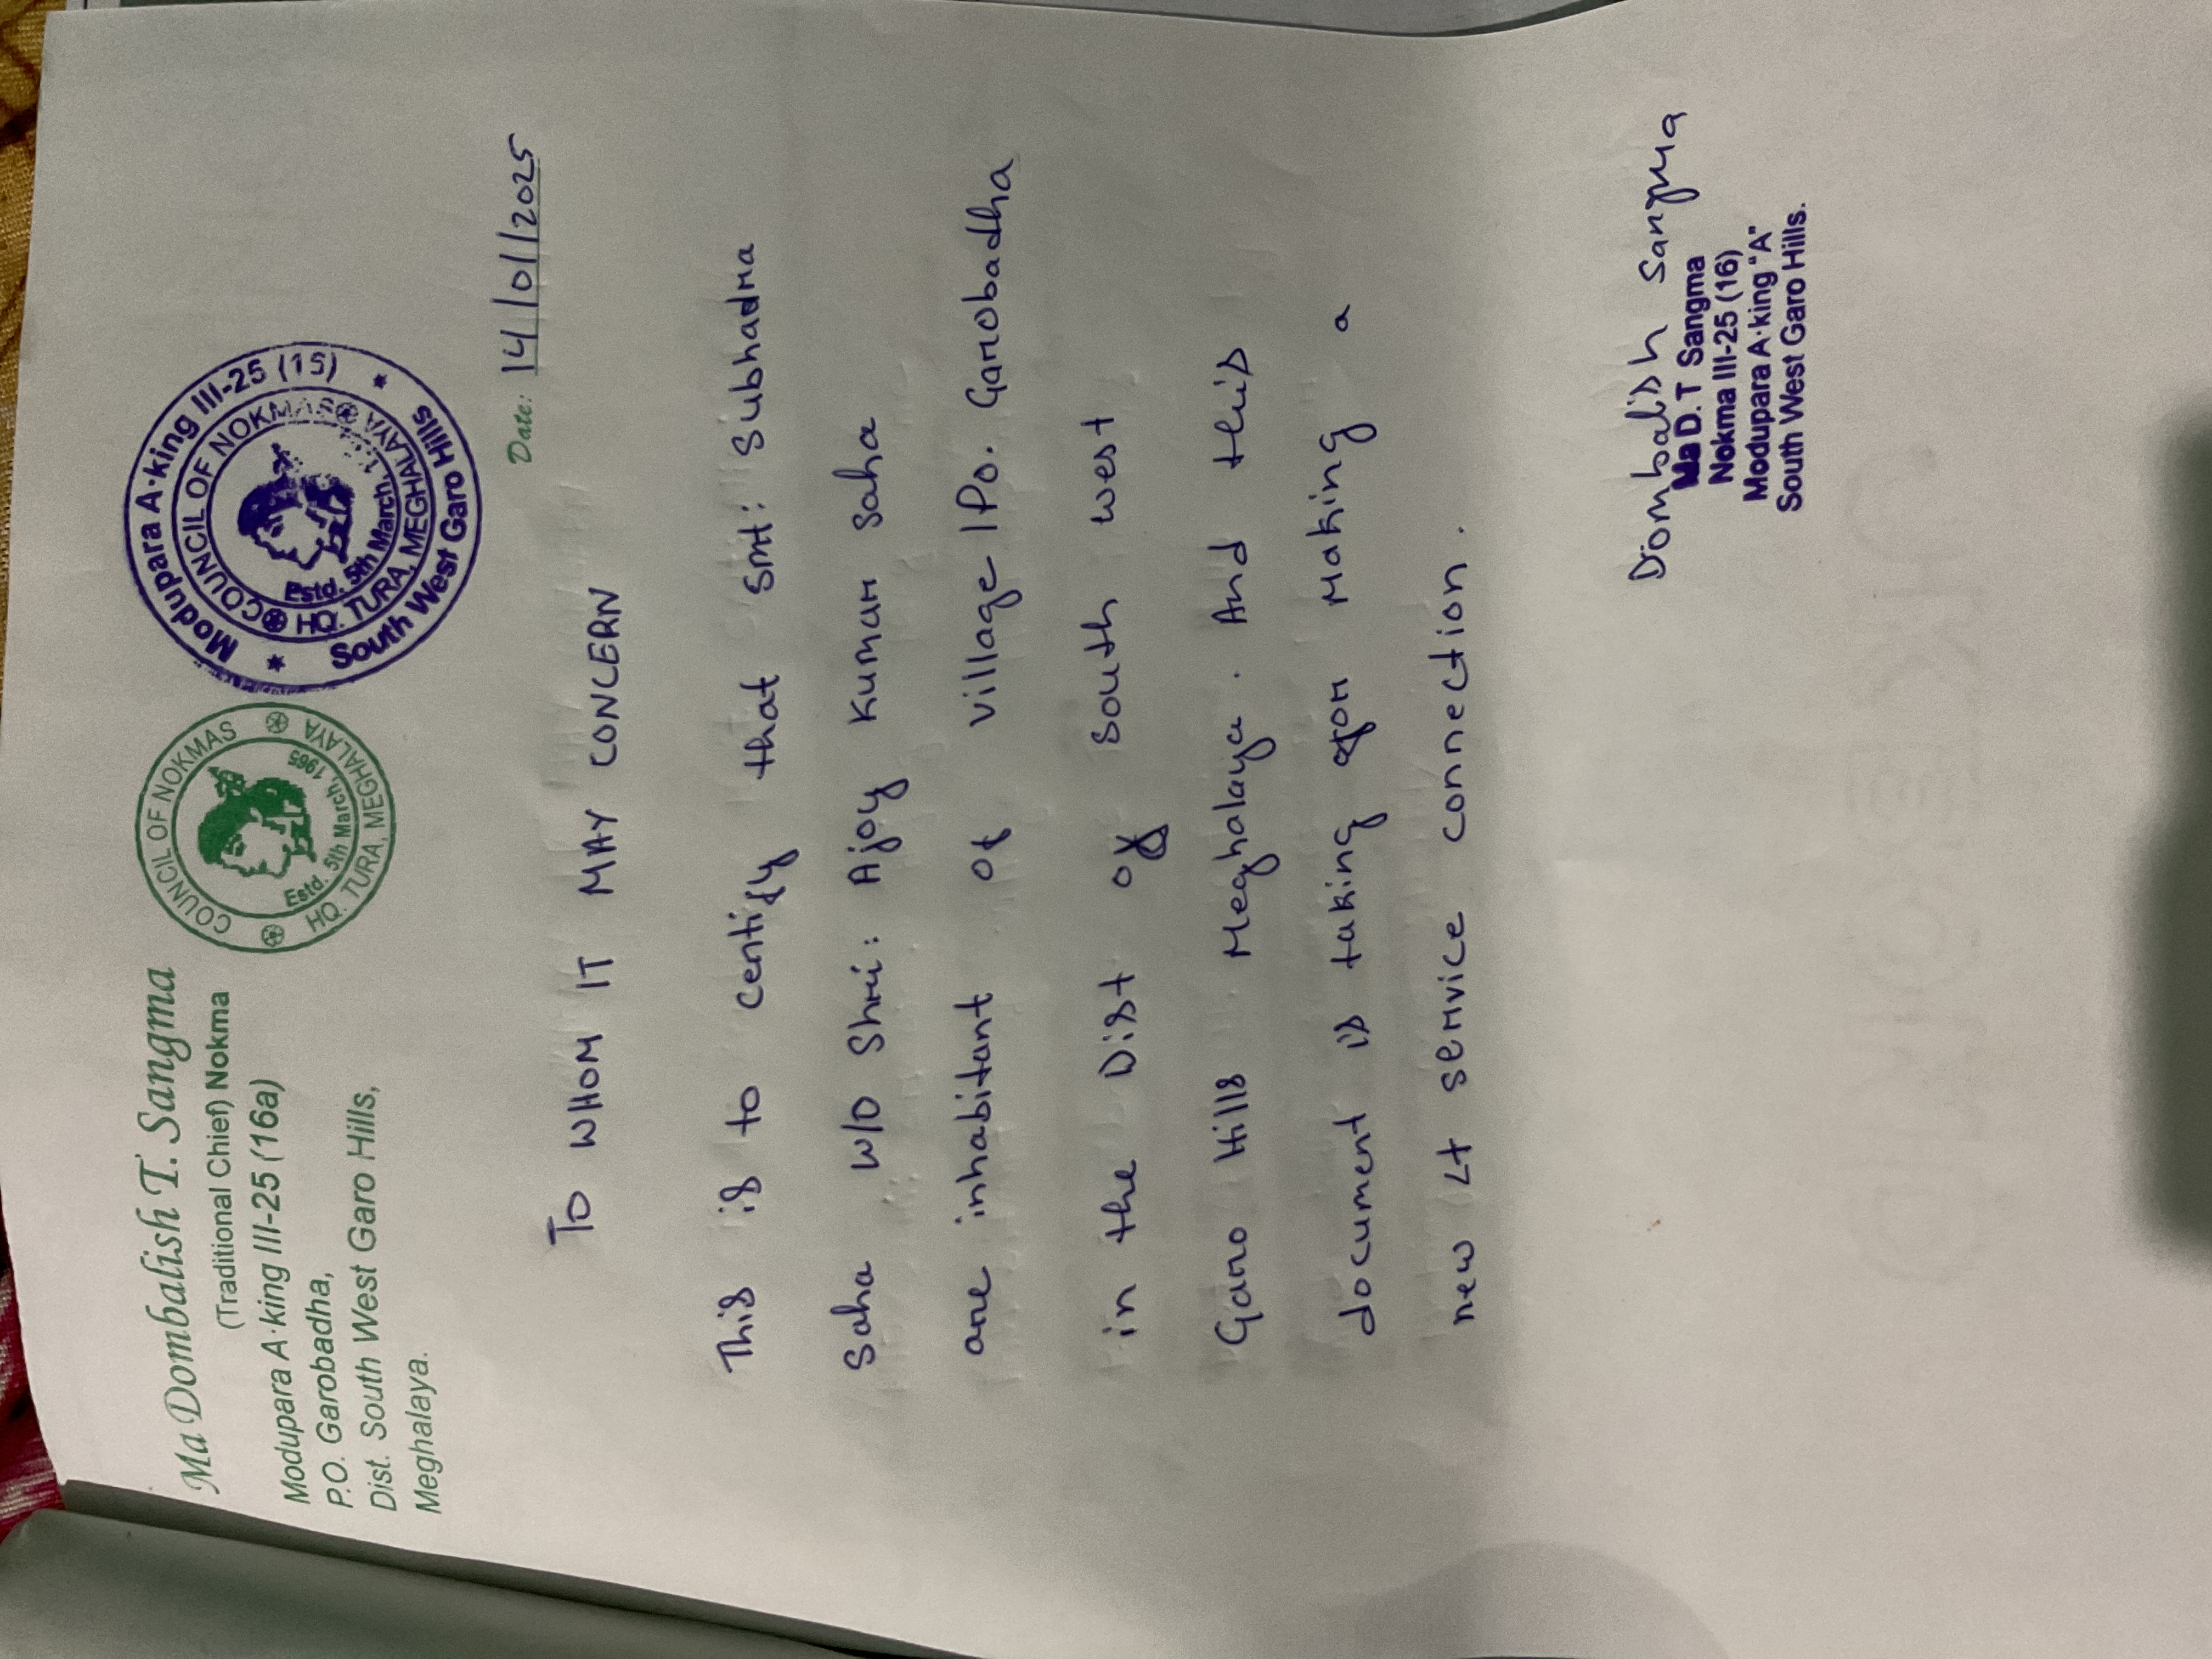 Ma Dombalish T. Sangma
(Traditional Chief) Nokma
Modupara A·king III-25 (16a)
P.O. Garobadha,
Dist. South West Garo Hills,
Meghalaya.
COUNCIL OF NOKMAS
Estd. 5th March, 1965
HQ. TURA, MEGHALAYA
Modupara A·king III-25 (15)
COUNCIL OF NOKMAS
Estd. 5th March, 1
HQ. TURA, MEGHALAYA
South West Garo Hills
Date: 14/01/2025
TO WHOM IT MAY CONCERN
This is to certify that Smt: Subhadra
Saha W/O Shri: Ajoy Kumar Saha
are inhabitant of village/Po. Garobadha
in the Dist of South west
Garo Hills Meghalaya. And this
document is taking for making a
new Lt service connection.
Dombalish Sangma
Ma D. T Sangma
Nokma III-25 (16)
Modupara A·king "A"
South West Garo Hills.